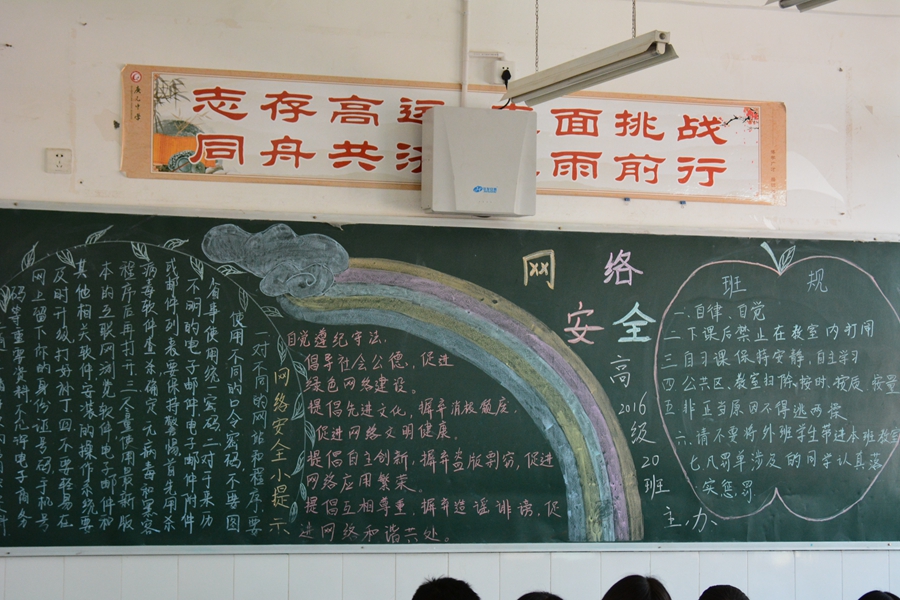 志存高远 面挑战
同舟共济 雨前行
网络
安全
高
2016
级
20
班
主办
网络安全小提示
一对不同的网站和程序要
使用不同的口令密码,不要图
省事使用统一密码二对于来历
不明的电子邮件电子邮件附件
或邮件列表要保持警惕首先用杀
病毒软件查杀确定无病毒和
程序后再打开三尽量使用最新版
本的互联网浏览软件电子邮件和
其他相关软件安装的操作系统要
及时升级打好补丁四不要轻易在
网上留下你的身份证号码手机号
码等重要资料不允许电子商务
自觉遵纪守法,
倡导社会公德,促进
绿色网络建设。
提倡先进文化,摒弃消极颓废,
促进网络文明健康。
提倡自主创新,摒弃盗版剽窃,促进
网络应用繁荣。
提倡互相尊重,摒弃造谣诽谤,促
进网络和谐共处。
班规
一.自律、自觉
二下课后禁止在教室内打闹
三自习课保持安静,自主学习
四公共区、教室扫除、按时、按质、按量
五非正当原因不得逃两操
六.请不要将外班学生带进本班教室
七.凡罚单涉及的同学认真落
实惩罚